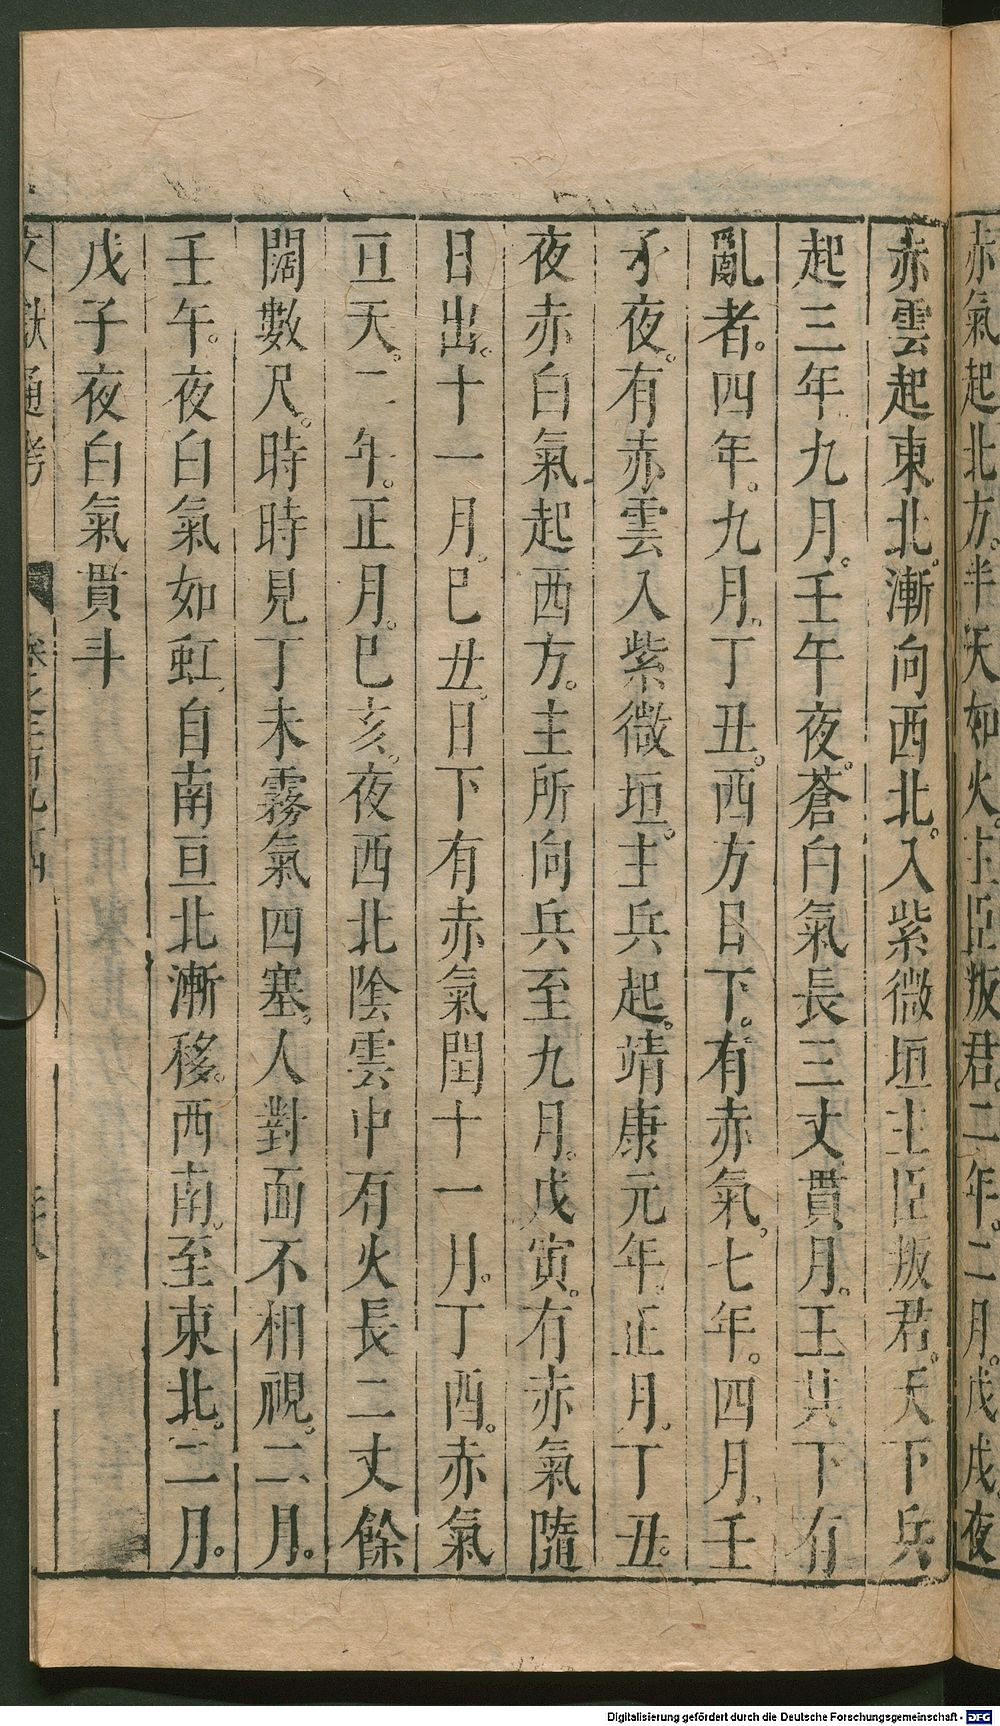 赤氣起北方。半天如火。主臣叛君。二年。二月。戊戌夜
赤雲起東北。漸向西北。入紫微垣主臣叛君。天下兵
起三年九月。壬午夜。蒼白氣長三丈貫月。主其下有
亂者。四年。九月。丁丑。西方日下。有赤氣。七年。四月。壬
子夜。有赤雲入紫微垣。主兵起。靖康元年。正月。丁丑。
夜赤白氣起西方。主所向兵至九月。戊寅。有赤氣隨
日出。十一月。巳丑。日下有赤氣閏十一月。丁酉。赤氣
亘天。二年。正月。巳亥。夜西北陰雲中有火長二丈餘
闊數尺。時時見丁未霧氣四塞。人對面不相視。二月。
壬午。夜白氣如虹。自南亘北漸移。西南。至東北。二月。
戊子夜白氣貫斗
文獻通考
Digitalisierung gefördert durch die Deutsche Forschungsgemeinschaft - DFG